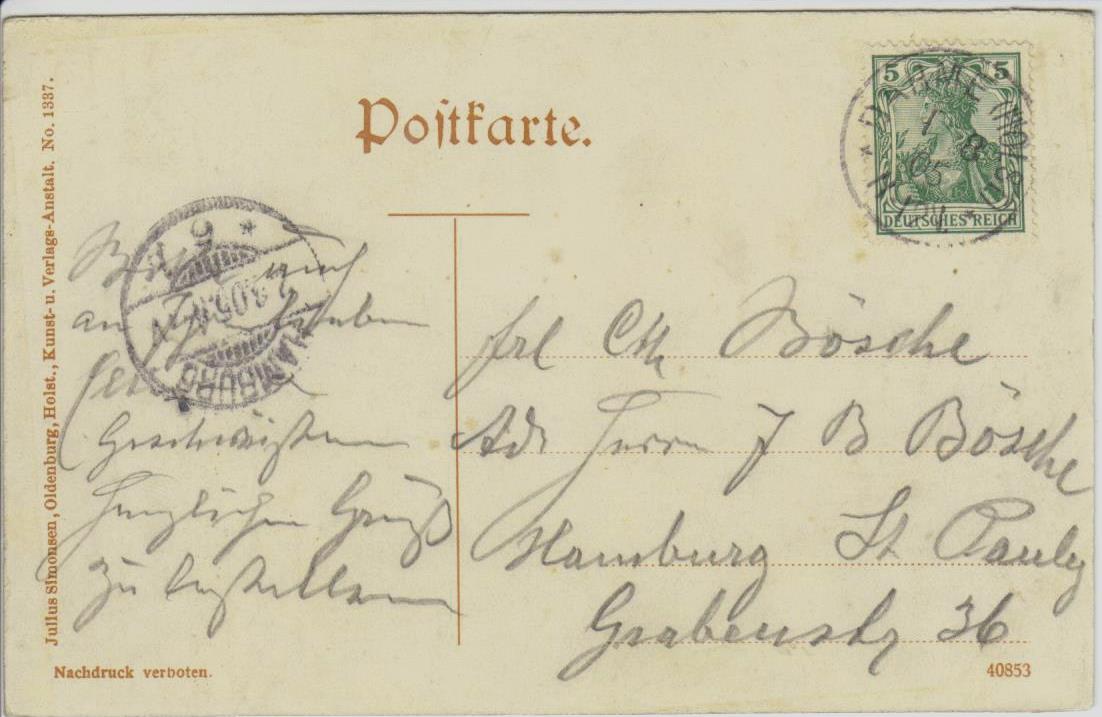 Postkarte.
5 5
DEUTSCHES REICH
DAHME (HOLST)
1 8
05
HAMBURG
.8.05.
Bitte auch
an Ihre lieben
Geschwistern
herzlichen Gruß
zu bestellen
Frl Cth Bösche
Adr Herrn J B Bösche
Hamburg St Pauly
Grabenstr 36
Julius Simonsen, Oldenburg, Holst., Kunst- u. Verlags-Anstalt. No. 1337.
Nachdruck verboten.
40853